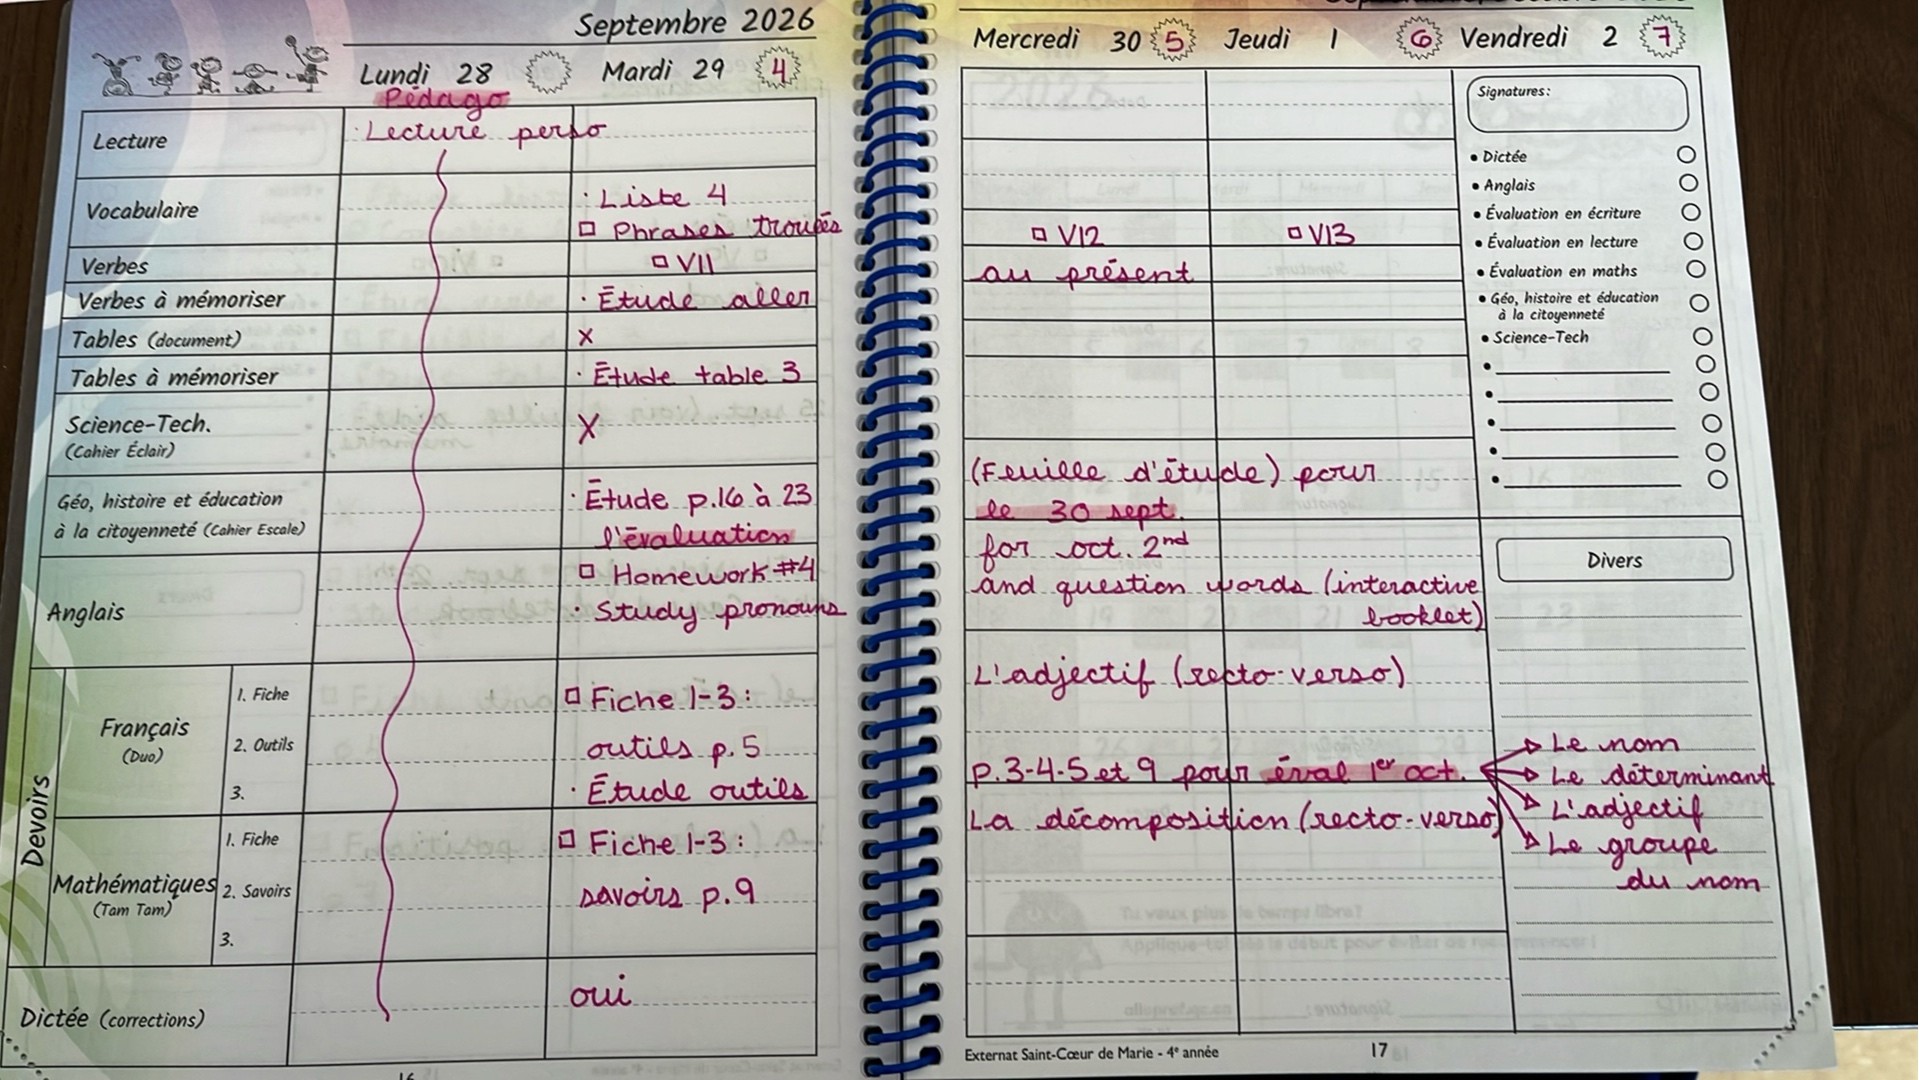 Septembre 2026
Lundi 28
Mardi 29 4
Pédago
Lecture
· Lecture perso
Vocabulaire
· Liste 4
□ Phrases trouées
Verbes
□ V11
Verbes à mémoriser
· Étude aller
Tables (document)
x
Tables à mémoriser
· Étude table 3
Science-Tech.
(Cahier Éclair)
X
Géo, histoire et éducation
à la citoyenneté (Cahier Escale)
· Étude p.16 à 23
l'évaluation
Anglais
□ Homework #4
· Study pronouns
Devoirs
Français
(Duo)
1. Fiche
2. Outils
3.
□ Fiche 1-3 :
outils p. 5
· Étude outils
Mathématiques
(Tam Tam)
1. Fiche
2. Savoirs
3.
□ Fiche 1-3 :
savoirs p. 9
Dictée (corrections)
oui
16
Mercredi 30 5
Jeudi 1 6
Vendredi 2 7
□ V12
□ V13
au présent
(Feuille d'étude) pour
le 30 sept.
for oct. 2nd
and question words (interactive
booklet)
L'adjectif (recto-verso)
p. 3-4-5 et 9 pour éval 1er oct.
La décomposition (recto-verso)
Signatures:
• Dictée
• Anglais
• Évaluation en écriture
• Évaluation en lecture
• Évaluation en maths
• Géo, histoire et éducation
à la citoyenneté
• Science-Tech
Divers
Le nom
Le déterminant
L'adjectif
Le groupe
du nom
Externat Saint-Cœur de Marie - 4e année
17